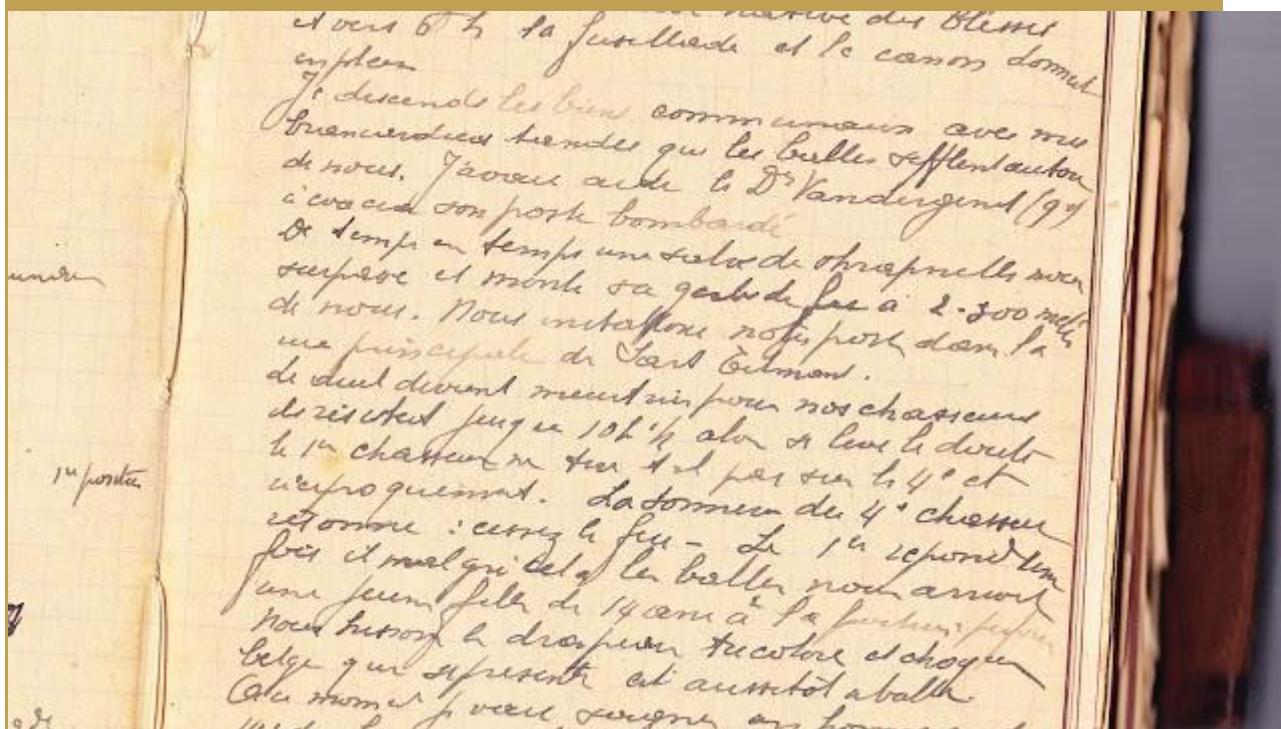 des Blessés
et vers 6 h la fusillade et le canon donnent
en plein
Je descends les biens communaux avec mes
brancardiers tandis que les balles sifflent autour
de nous. J'avais aidé le Dr Vanderginst (9e)
à évacuer son poste bombardé
De temps en temps une salve de shrapnells nous
surpasse et monte sa gerbe de feu à 2-300 mètres
de nous. Nous installons notre poste dans la
rue principale de Sart Tilmant.
Le duel devient meurtrier pour nos chasseurs
ils resistent jusque 10h ½ alors se leve le doute
le 1er chasseur ne tire t-il pas sur le 4e et
réciproquement. La sonnerie du 4e chasseur
résonne : cessez le feu - Le 1er repond
fois et malgré cela les balles nous arrivent
une jeune fille de 14 ans à la
Nous hissons le drapeau tricolore et chaque
belge qui se présente est aussitôt abattu.
Au moment je vais soigner un homme
1re position